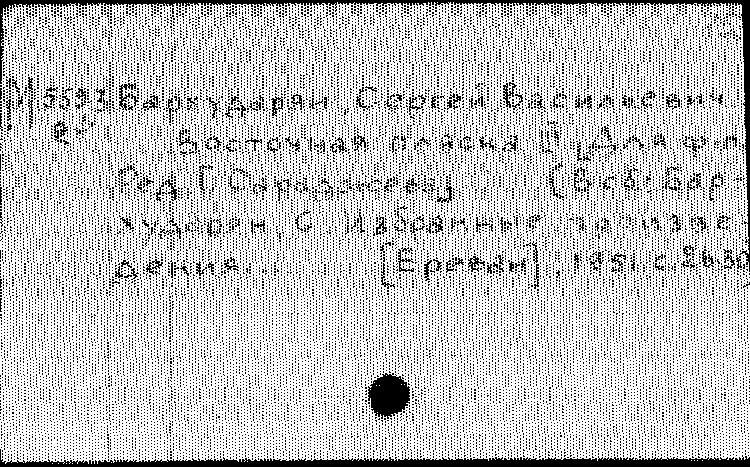 М 5593 Бархударян, Сергей Васильевич.
Восточная пляска [Для ф-п
Ред. Г. Сараджева] (В сб: Бар-
хударян, С. Избранные произве-
дения... [Ереван], 1951, с. 26-30)